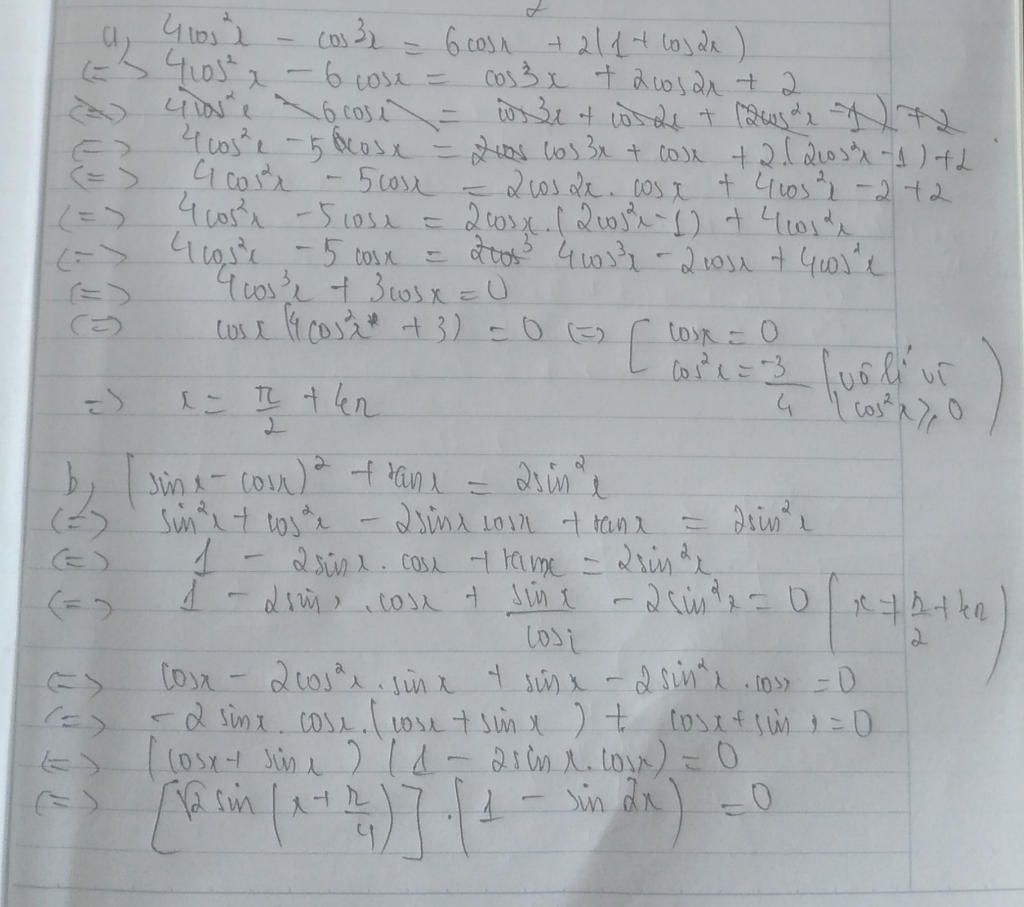 a, 4cos²x - cos3x = 6cosx + 2(1 + cos2x)
<=> 4cos²x - 6cosx = cos3x + 2cos2x + 2
<=> 4cos²x - 6cosx = cos3x + cos2x + (2cos²x - 1) + 2
<=> 4cos²x - 5cosx = 2cos cos3x + cosx + 2(2cos²x - 1) + 2
<=> 4cos²x - 5cosx = 2cos2x. cosx + 4cos²x - 2 + 2
<=> 4cos²x - 5cosx = 2cosx.(2cos²x - 1) + 4cos²x
<=> 4cos²x - 5cosx = 2cos³ 4cos³x - 2cosx + 4cos²x
<=> 4cos³x + 3cosx = 0
<=> cosx(4cos²x + 3) = 0 <=> [ cosx = 0
cos²x = -3/4 (vô lí vì cos²x ≥ 0)
=> x = π/2 + kπ
b, (sinx - cosx)² + tanx = 2sin²x
<=> sin²x + cos²x - 2sinx cosx + tanx = 2sin²x
<=> 1 - 2sinx. cosx + tanx = 2sin²x
<=> 1 - 2sinx .cosx + sinx/cosx - 2sin²x = 0 (x ≠ π/2 + kπ)
<=> cosx - 2cos²x.sinx + sinx - 2sin²x.cosx = 0
<=> -2sinx. cosx.(cosx + sinx) + cosx + sinx = 0
<=> (cosx + sinx)(1 - 2sinx.cosx) = 0
<=> [√2 sin(x + π/4)].(1 - sin2x) = 0